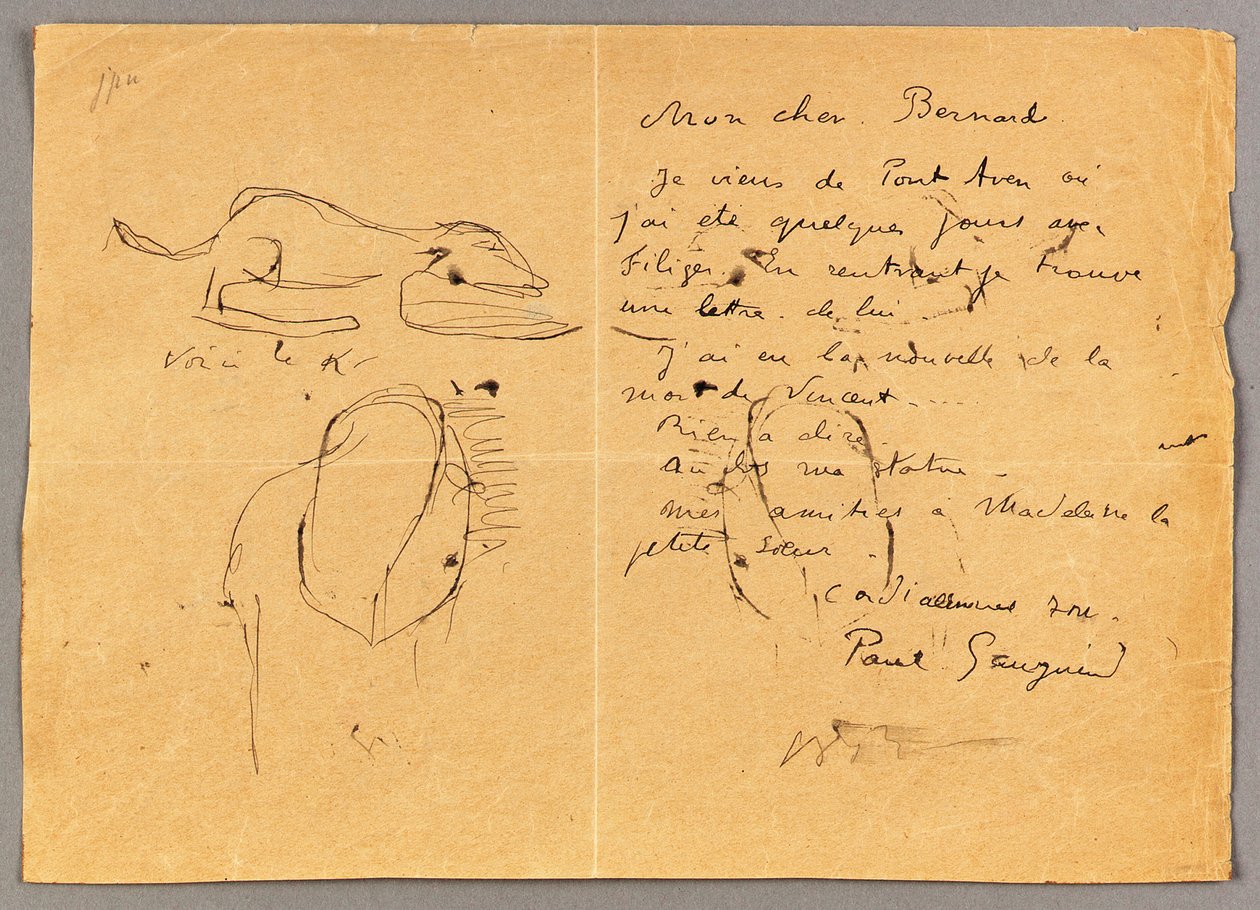 jpu
Voici le K
Mon cher Bernard
Je viens de Pont Aven où
j'ai été quelques jours avec
Filiger. En rentrant je trouve
une lettre de lui
J'ai eu la nouvelle de la
mort de Vincent.....
Rien à dire
ma statue
mes amitiés à Madeleine la
petite soeur.
Cordialement
Paul Gauguin